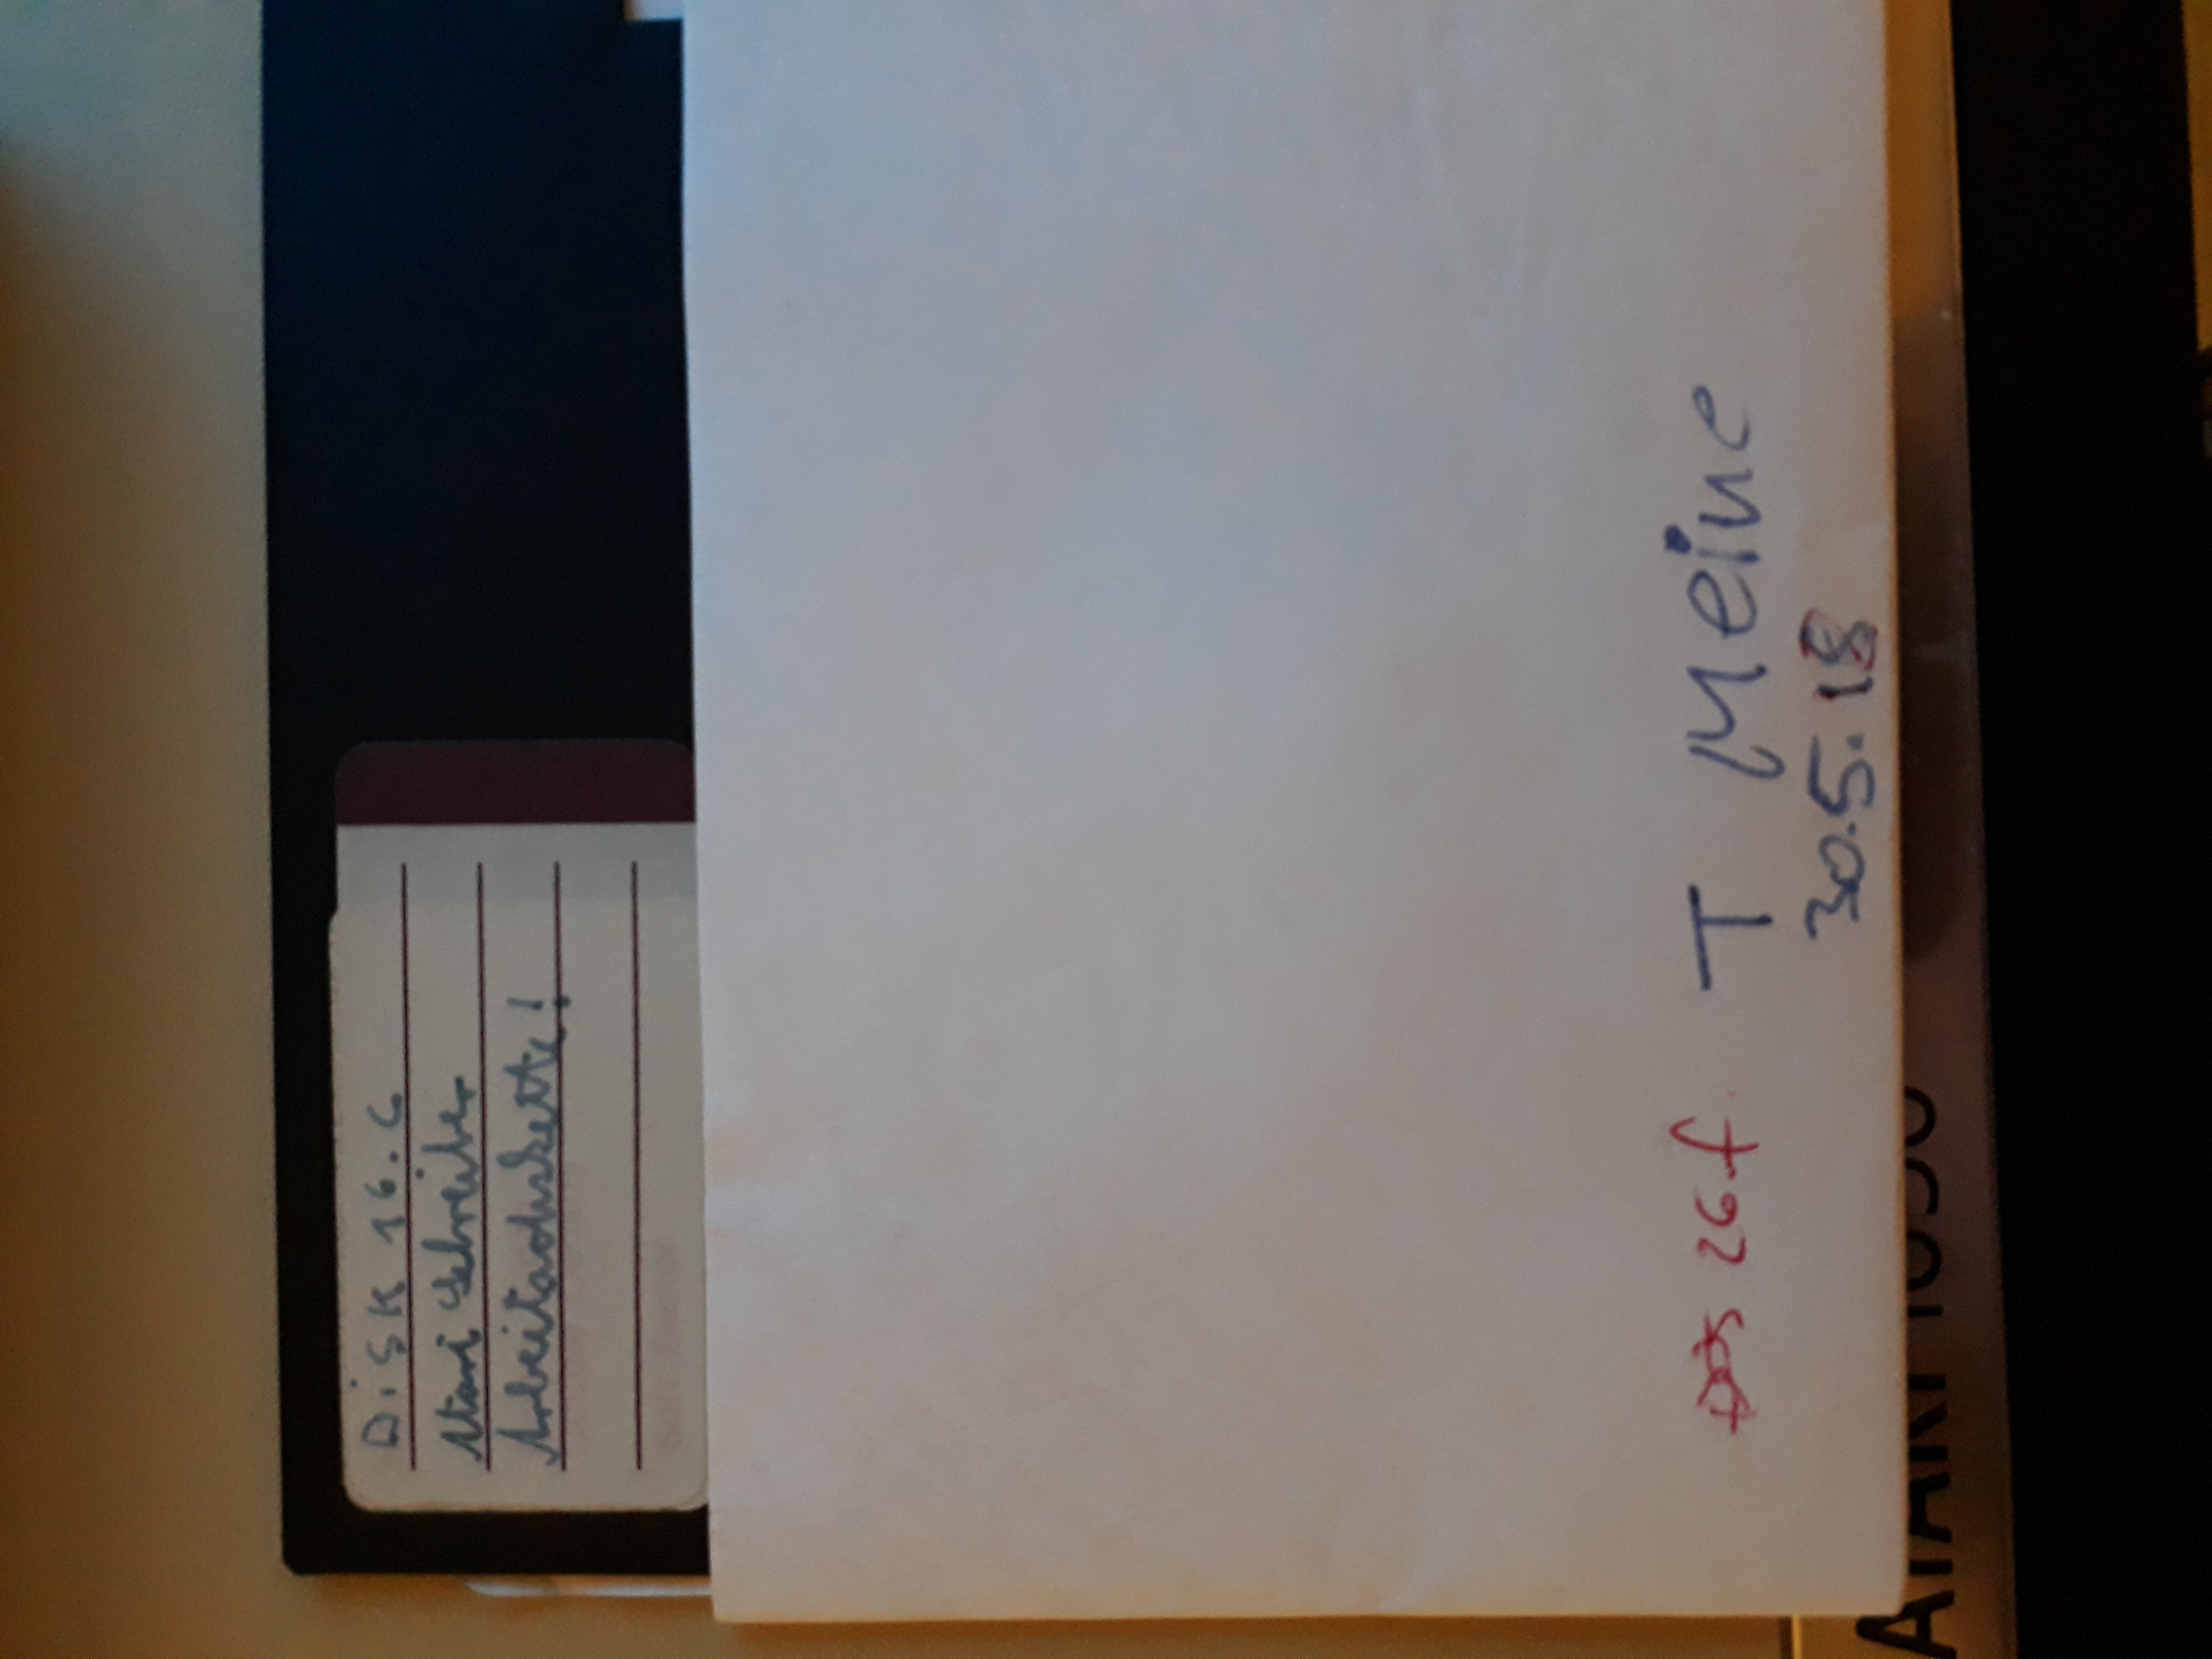 DiSK 16.6
Atari Schreiber
Arbeitsdiskette!
26.f T Meine
30.5.18
ATARI 1050